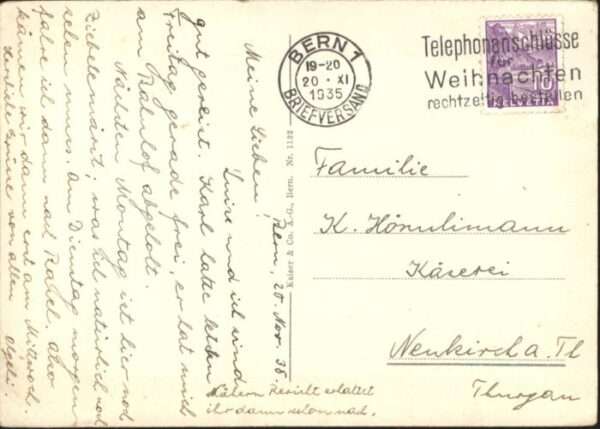 Bern, 20. Nov. 35
Meine Lieben!
und ich sind
gut gereist. Karl hatte letzten
Freitag gerade frei, er hat mich
am Bahnhof abgeholt.
Nächsten Montag ist hier noch
Zibelemärit, was ich natürlich noch
sehen muss. Am Dienstag morgen
fahre ich dann nach Basel. Also
kämen wir dann erst am Mittwoch.
Herzliche Grüsse von allen
Nähern Bericht erstattet
ihr dann schon noch.
Kaiser & Co. A.-G., Bern. Nr. 1132
BERN 1
19-20
20·XI
1935
BRIEFVERSAND
Telephonanschlüsse
für
Weihnachten
rechtzeitig bestellen
10
HELVETIA
Familie
K. Hörnlimann
Käserei
Neukirch a. Th
Thurgau